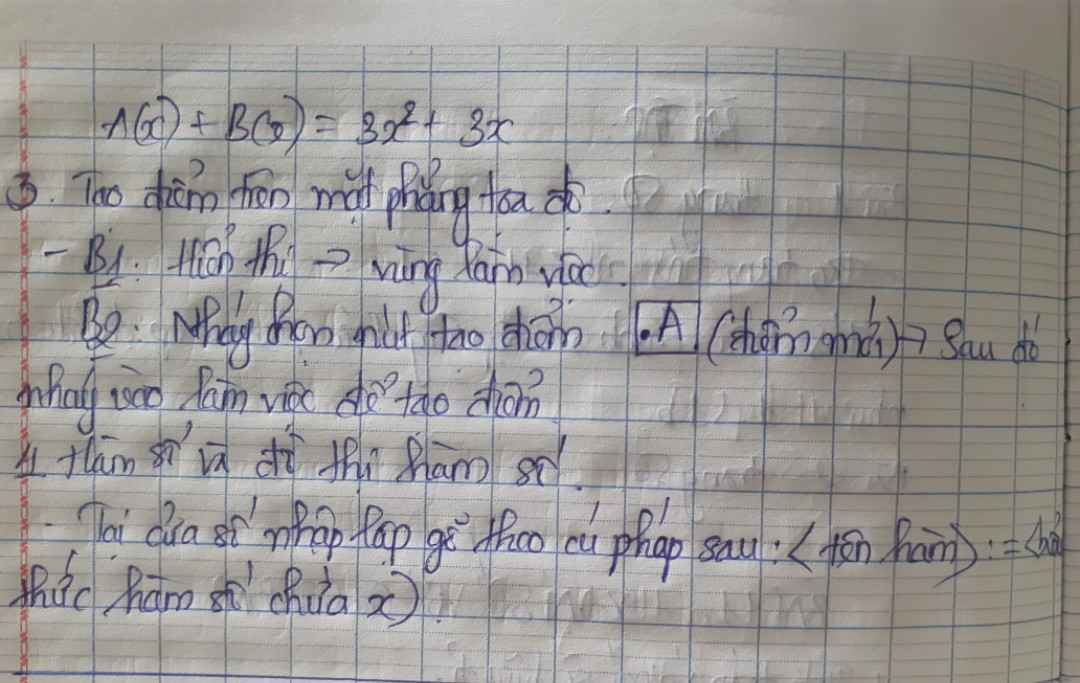 A(x) + B(x) = 3x² + 3x
3. Tạo điểm trên mặt phẳng tọa độ.
- B1: Hiển thị → vùng làm việc.
B2: Nháy chọn nút tạo điểm .A (điểm mới) → Sau đó
nháy vào làm việc để tạo điểm
4 Hàm số và đồ thị hàm số.
- Tại cửa sổ nhập lập gõ theo cú pháp sau: < tên hàm> :=
thức hàm số chứa x>.